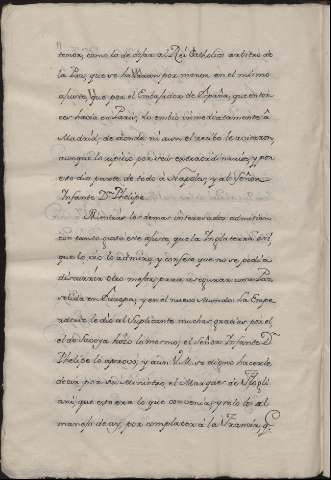 temor, como lo de dejar al Rei Catholico arbitro de
la Paz, que se hallaran por menor en el mismo
ajuste, que por el Embajador de España, que enton
ces havia en Paris, lo embió immediatamente à
Madrid, de donde ni aun el recibo le avisaron,
aunque lo repitio por seis extraordinarios, y por
este dio parte de todo à Napoles, y al Señor
Infante Dn. Phelipe.
Mientras los demas interesados admitian
con tanto gusto este ajuste, que la Inglaterra
que lo vio lo admiró, y confesó que no se podia
discurrir otro mejor para asegurar una Paz
solida en Europa, y en el nuevo Mundo: la Empe
ratriz le dio al Suplicante muchas gracias por el
el de Saboya hizo lo mesmo; el Señor Infante Dn.
Phelipe lo aprovò, y aun V. M. se dignó hacerle
decir por su Ministro el Marques de Fogli
ani, que esto era lo que convenia, y solo
por complacer à la Francia,